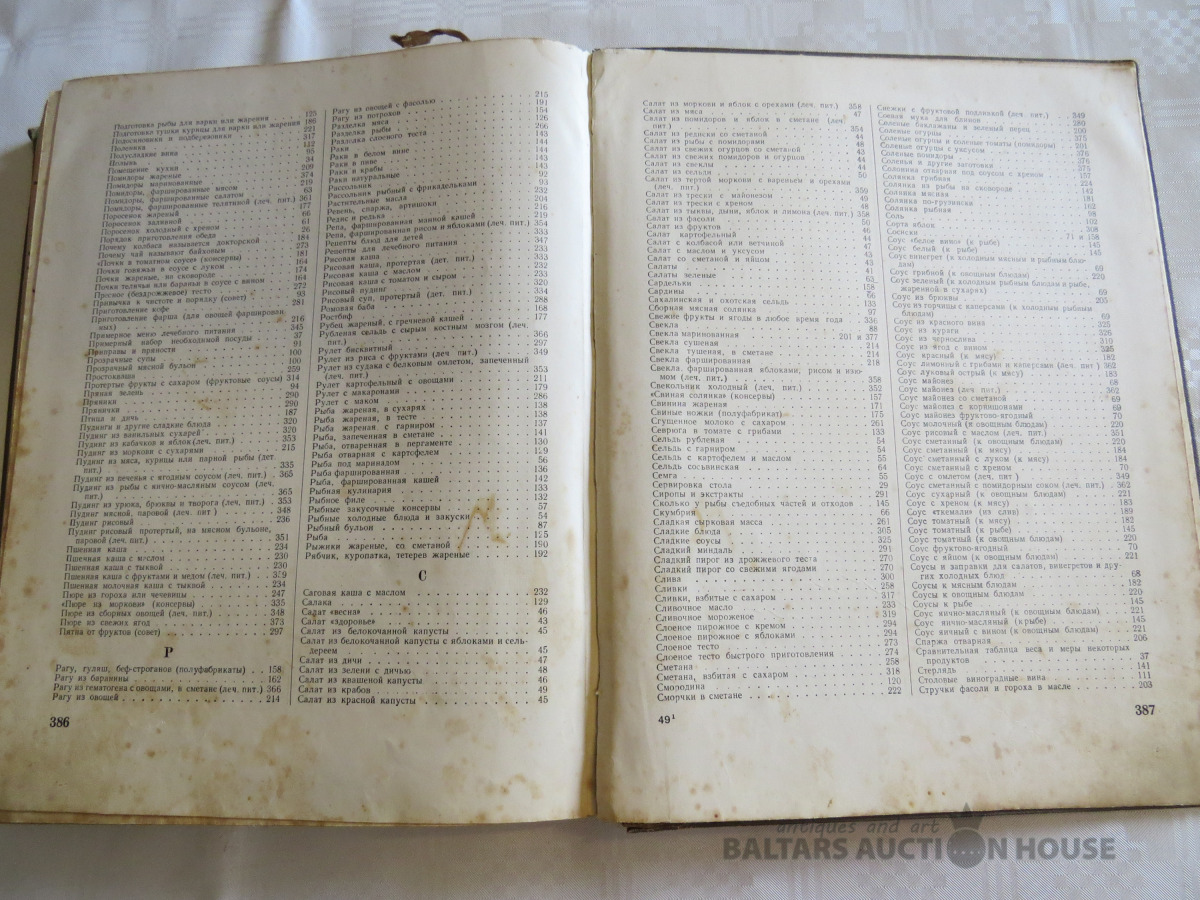 Подготовка рыбы для варки или жарения 125
Подготовка тушки курицы для варки или жарения 186
Подосиновики и подберезовики 221
Полоника 317
Полусладкие вина 112
Полынь 95
Помещение кухни 34
Помидоры жареные 209
Помидоры маринованные 374
Помидоры, фаршированные мясом 219
Помидоры, фаршированные салатом 63
Помидоры, фаршированные телятиной (леч. пит.) 361
Поросенок жареный 177
Поросенок заливной 66
Поросенок холодный с хреном 61
Порядок приготовления обеда 26
Почему колбаса называется докторской 184
Почему чай называют байховым 273
«Почки в томатном соусе» (консервы) 181
Почки говяжьи в соусе с луком 164
Почки жареные, на сковороде 174
Почки телячьи или бараньи в соусе с вином 164
Пресное (бездрожжевое) тесто 272
Привычка к чистоте и порядку (совет) 93
Приготовление кофе 281
Приготовление фарша (для овощей фаршированных) 216
Примерное меню лечебного питания 345
Примерный набор необходимой посуды 37
Приправы и пряности 91
Прозрачные супы 100
Прозрачный мясной бульон 100
Простокваша 259
Протертые фрукты с сахаром (фруктовые соусы) 314
Пряная зелень 94
Пряники 290
Прянички 290
Птица и дичь 187
Пудинги и другие сладкие блюда 320
Пудинг из ванильных сухарей 320
Пудинг из кабачков и яблок (леч. пит.) 353
Пудинг из моркови с сухарями 215
Пудинг из мяса, курицы или парной рыбы (дет.
пит.) 335
Пудинг из печенья с ягодным соусом (леч. пит.) 365
Пудинг из рыбы с яично-масляным соусом (леч.
пит.) 365
Пудинг из урюка, брюквы и творога (леч. пит.) 353
Пудинг мясной, паровой (леч. пит.) 348
Пудинг рисовый 236
Пудинг рисовый протертый, на мясном бульоне,
паровой (леч. пит.) 351
Пшенная каша 234
Пшенная каша с маслом 230
Пшенная каша с тыквой 230
Пшенная каша с фруктами и медом (леч. пит.) 359
Пшенная молочная каша с тыквой 234
Пюре из гороха или чечевицы 247
«Пюре из моркови» (консервы) 335
Пюре из сборных овощей (леч. пит.) 348
Пюре из свежих ягод 373
Пятна от фруктов (совет) 297
Р
Рагу, гуляш, беф-строганов (полуфабрикаты) 158
Рагу из баранины 162
Рагу из гематогена с овощами, в сметане (леч. пит.) 366
Рагу из овощей 214
386
Рагу из овощей с фасолью 215
Рагу из потрохов 191
Разделка мяса 154
Разделка рыбы 126
Разделка слоеного теста 266
Раки 143
Раки в белом вине 144
Раки в пиве 144
Раки и крабы 143
Раки натуральные 143
Рассольник 92
Рассольник рыбный с фрикадельками 93
Растительные масла 232
Ревень, спаржа, артишоки 204
Редис и редька 216
Репа, фаршированная манной кашей 219
Репа, фаршированная рисом и яблоками (леч. пит.) 354
Рецепты блюд для детей 333
Рецепты для лечебного питания 347
Рисовая каша 233
Рисовая каша, протертая (дет. пит.) 333
Рисовая каша с маслом 232
Рисовая каша с томатом и сыром 233
Рисовый пудинг 232
Рисовый суп, протертый (дет. пит.) 334
Ромовая баба 288
Ростбиф 168
Рубец жареный, с гречневой кашей 177
Рубленая сельдь с сырым костным мозгом (леч.
пит.) 366
Рулет бисквитный 297
Рулет из риса с фруктами (леч пит.) 349
Рулет из судака с белковым омлетом, запеченный
(леч. пит.) 353
Рулет картофельный с овощами 211
Рулет с макаронами 179
Рулет с маком 286
Рыба жареная, в сухарях 138
Рыба жареная, в тесте 138
Рыба жареная с гарниром 137
Рыба, запеченная в сметане 141
Рыба, отваренная в пергаменте 130
Рыба отварная с картофелем 129
Рыба под маринадом 56
Рыба фаршированная 136
Рыба, фаршированная кашей 142
Рыбная кулинария 133
Рыбное филе 132
Рыбные закусочные консервы 57
Рыбные холодные блюда и закуски 54
Рыбный бульон 87
Рыба 125
Рыжики жареные, со сметаной 190
Рябчик, куропатка, тетерев жареные 192
С
Саговая каша с маслом 232
Салака 129
Салат «весна» 46
Салат «здоровье» 43
Салат из белокочанной капусты 45
Салат из белокочанной капусты с яблоками и сель-
дереем 45
Салат из дичи 47
Салат из зелени с дичью 48
Салат из квашеной капусты 46
Салат из крабов 49
Салат из красной капусты 45
Салат из моркови и яблок с орехами (леч. пит.) 358
Салат из мяса 47
Салат из помидоров и яблок в сметане (леч.
пит.) 354
Салат из редиски со сметаной 44
Салат из рыбы с помидорами 48
Салат из свежих огурцов со сметаной 43
Салат из свежих помидоров и огурцов 44
Салат из свеклы 44
Салат из сельди 50
Салат из тертой моркови с вареньем и орехами
(леч. пит.) 359
Салат из трески с майонезом 49
Салат из трески с хреном 48
Салат из тыквы, дыни, яблок и лимона (леч. пит.) 358
Салат из фасоли 50
Салат из фруктов 46
Салат картофельный 44
Салат с колбасой или ветчиной 47
Салат с маслом и уксусом 43
Салат со сметаной и яйцом 43
Салаты 41
Салаты зеленые 63
Сардельки 158
Сардины 66
Сахалинская и охотская сельдь 133
Сборная мясная солянка 97
Свежие фрукты и ягоды в любое время года 336
Свекла 88
Свекла маринованная 201 и 377
Свекла сушеная 214
Свекла тушеная, в сметане 214
Свекла фаршированная 218
Свекла, фаршированная яблоками, рисом и изю-
мом (леч. пит.) 358
Свекольник холодный (леч. пит.) 352
«Свиная солянка» (консервы) 157
Свинина жареная 171
Свиные ножки (полуфабрикат) 175
Сгущенное молоко с сахаром 261
Севрюга в томате с грибами 133
Сельдь рубленая 54
Сельдь с гарниром 54
Сельдь с картофелем и маслом 55
Сельдь сосьвинская 64
Семга 55
Сервировка стола 29
Сиропы и экстракты 291
Сколько у рыбы съедобных частей и отходов 145
Скумбрия 66
Сладкая сырковая масса 261
Сладкие блюда 305
Сладкие соусы 325
Сладкий миндаль 291
Сладкий пирог из дрожжевого теста 270
Сладкий пирог со свежими ягодами 270
Слива 300
Сливки 258
Сливки, взбитые с сахаром 317
Сливочное масло 233
Сливочное мороженое 319
Слоеное пирожное с кремом 294
Слоеное пирожное с яблоками 294
Слоеное тесто 273
Слоеное тесто быстрого приготовления 274
Сметана 258
Сметана, взбитая с сахаром 318
Смородина 120
Сморчки в сметане 222
49¹
Снежки с фруктовой подливкой (леч. пит.) 349
Соевая мука для блинов 280
Соленые баклажаны и зеленый перец 200
Соленые огурцы 375
Соленые огурцы и соленые томаты (помидоры) 201
Соленые огурцы с уксусом 376
Соленые помидоры 376
Соленья и другие заготовки 375
Солонина отварная под соусом с хреном 157
Солянка грибная 224
Солянка из рыбы на сковороде 142
Солянка мясная 181
Солянка по-грузински 162
Солянка рыбная 98
Соль 102
Сорта яблок 308
Сосиски 71 и 158
Соус «белое вино» (к рыбе) 145
Соус белый (к рыбе) 145
Соус винегрет (к холодным мясным и рыбным блю-
дам) 69
Соус грибной (к овощным блюдам) 220
Соус зеленый (к холодным рыбным блюдам и рыбе,
жаренной в сухарях) 69
Соус из брюквы 205
Соус из горчицы с каперсами (к холодным рыбным
блюдам) 69
Соус из красного вина 325
Соус из кураги 326
Соус из чернослива 310
Соус из ягод с вином 325
Соус красный (к мясу) 182
Соус лимонный с грибами и каперсами (леч. пит.) 362
Соус луковый острый (к мясу) 183
Соус майонез 68
Соус майонез (леч. пит.) 362
Соус майонез со сметаной 69
Соус майонез с корнишонами 69
Соус майонез фруктово-ягодный 70
Соус молочный (к овощным блюдам) 220
Соус рисовый с маслом (леч. пит.) 351
Соус сметанный (к овощным блюдам) 220
Соус сметанный (к мясу) 184
Соус сметанный с луком (к мясу) 184
Соус сметанный с хреном 70
Соус с омлетом (леч. пит) 349
Соус сметанный с помидорным соком (леч. пит.) 362
Соус сухарный (к овощным блюдам) 221
Соус с хреном (к мясу) 183
Соус «ткемали» (из слив) 189
Соус томатный (к мясу) 182
Соус томатный (к рыбе) 145
Соус томатный (к овощным блюдам) 220
Соус фруктово-ягодный 70
Соус с яйцом (к овощным блюдам) 221
Соусы и заправки для салатов, винегретов и дру-
гих холодных блюд 68
Соусы к мясным блюдам 182
Соусы к овощным блюдам 220
Соусы к рыбе 145
Соус яично-масляный (к овощным блюдам) 221
Соус яично-масляный (к рыбе) 145
Соус яичный с вином (к овощным блюдам) 221
Спаржа отварная 206
Сравнительная таблица веса и меры некоторых
продуктов 37
Стерлядь 141
Столовые виноградные вина 111
Стручки фасоли и гороха в масле 203
387
antiques and art
BALTARS AUCTION HOUSE